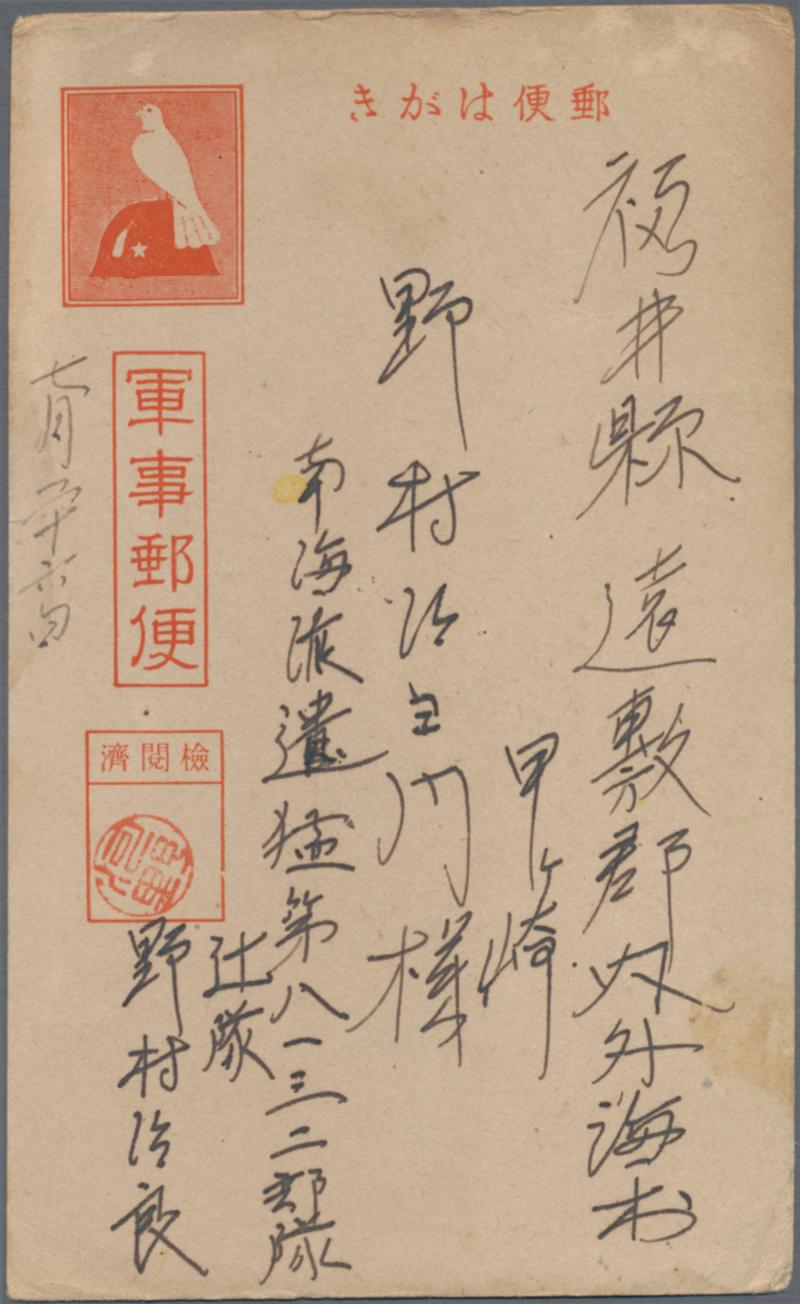 郵便はがき
福井縣遠敷郡内外海村
甲ヶ崎
野村治左門様
南海派遣猛第八一三二部隊
辻隊
野村治良
軍事郵便
檢閲濟
七月二十六日